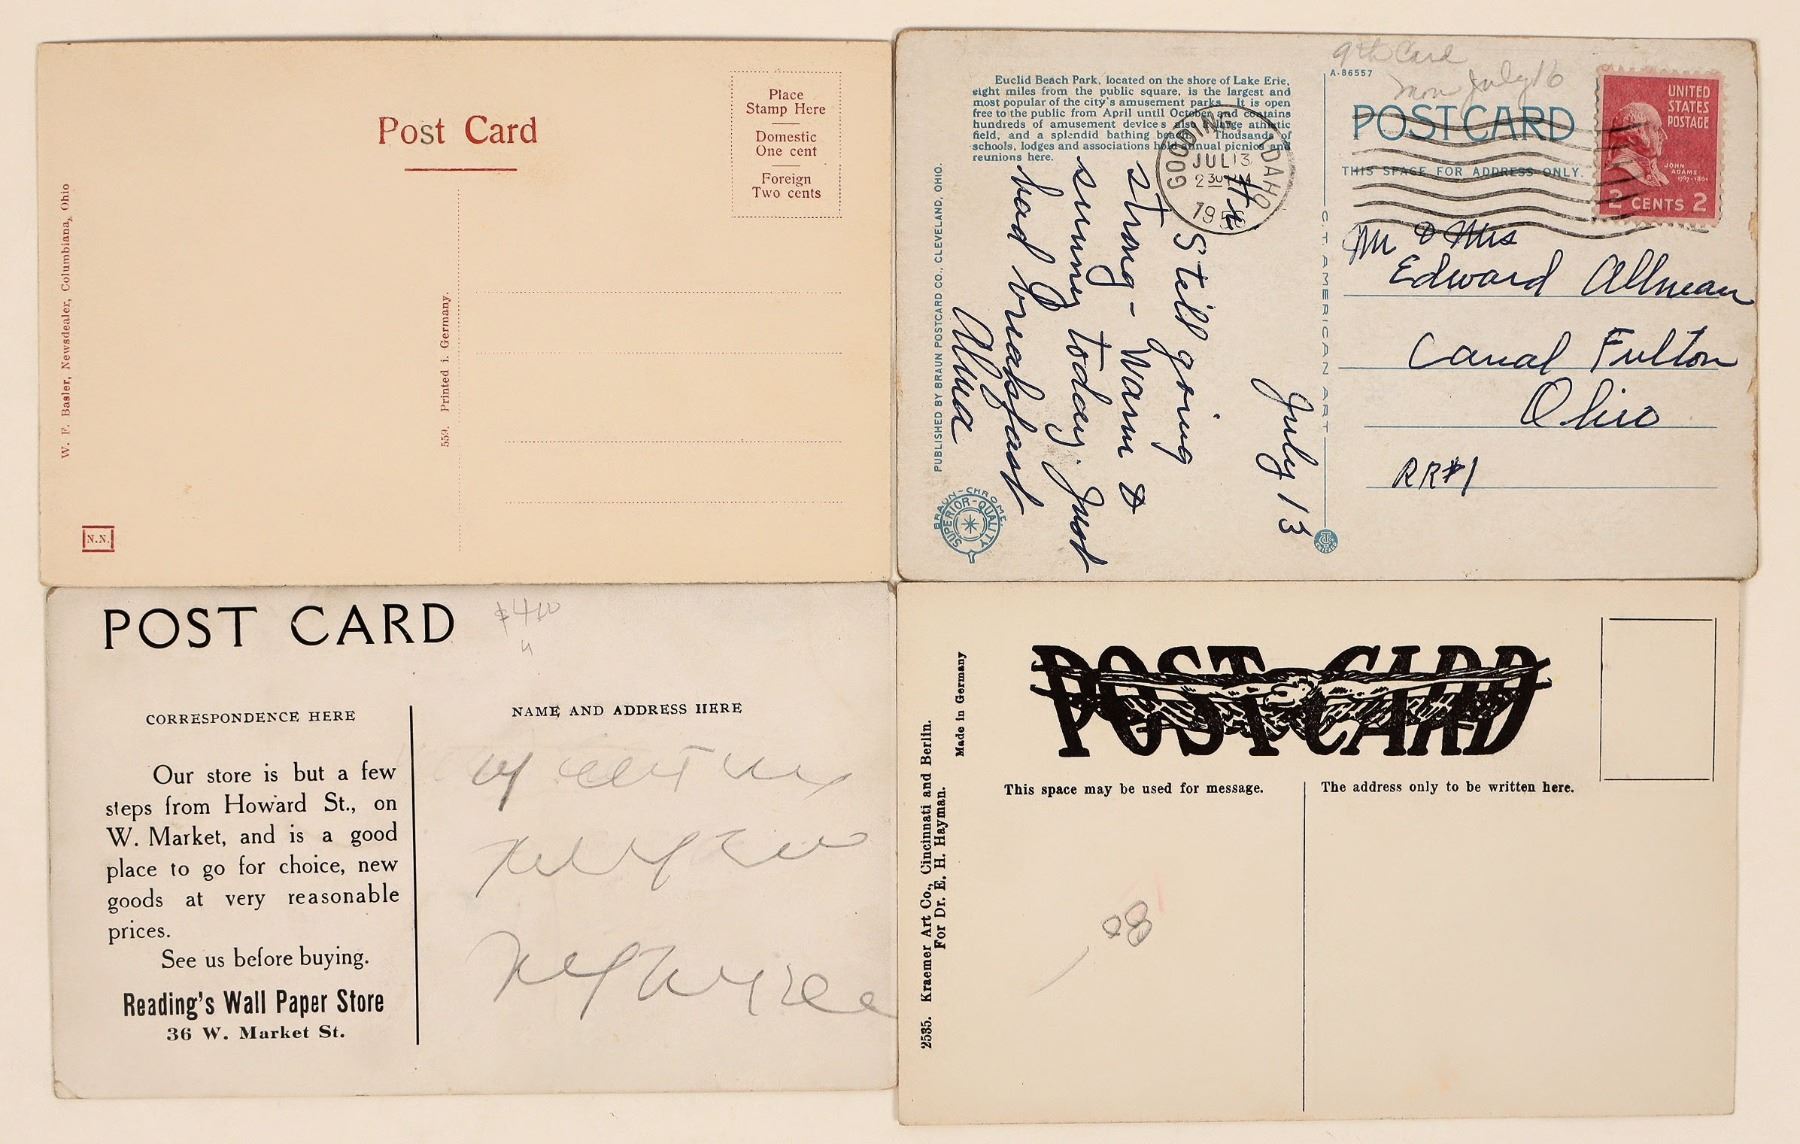 Post Card
Place
Stamp Here
Domestic
One cent
Foreign
Two cents
W. F. Basler, Newsdealer, Columbiana, Ohio
559. Printed i. Germany.
N.N.
9th Card
Mon July 16
Euclid Beach Park, located on the shore of Lake Erie,
eight miles from the public square, is the largest and
most popular of the city's amusement parks. It is open
free to the public from April until October and contains
hundreds of amusement devices also a large athletic
field, and a splendid bathing beach. Thousands of
schools, lodges and associations hold annual picnics and
reunions here.
A-86557
POST CARD
THIS SPACE FOR ADDRESS ONLY.
UNITED
STATES
POSTAGE
JOHN
ADAMS
1797-1801
2 CENTS 2
GOODING IDAHO
JUL 13
2 30 PM
PUBLISHED BY BRAUN POSTCARD CO., CLEVELAND, OHIO.
BRAUN-CHROME
SUPERIOR-QUALITY
C. T. AMERICAN ART
July 13
Hi
Still going
strong - Warm &
sunny today. Just
had breakfast
Alma
Mr & Mrs
Edward Allman
Canal Fulton
Ohio
RR#1
POST CARD
CORRESPONDENCE HERE
NAME AND ADDRESS HERE
Our store is but a few
steps from Howard St., on
W. Market, and is a good
place to go for choice, new
goods at very reasonable
prices.
See us before buying.
Reading's Wall Paper Store
36 W. Market St.
POST CARD
This space may be used for message.
The address only to be written here.
Made in Germany
2535. Kraemer Art Co., Cincinnati and Berlin.
For Dr. E. H. Hayman.